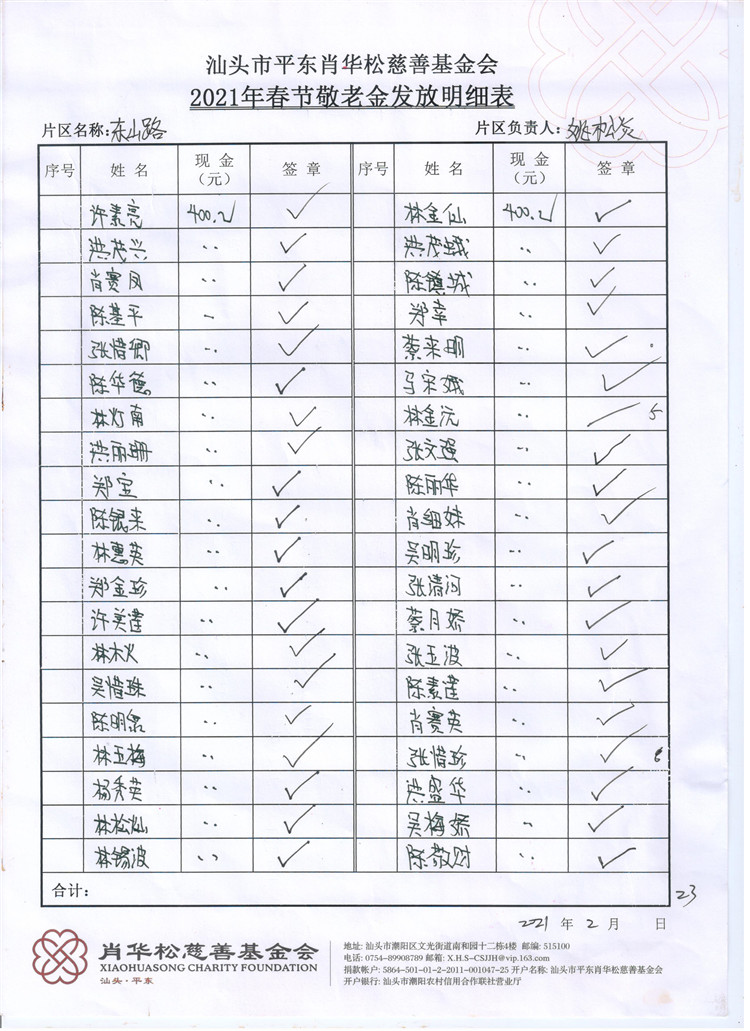 汕头市平东肖华松慈善基金会
2021年春节敬老金发放明细表
片区名称:东山路 片区负责人:
序号 姓名 现金(元) 签章 序号 姓名 现金(元) 签章
许素亮 400.元 ✓ 林金仙 400.元 ✓
洪茂兴 ·· ✓ 洪茂娥 ·· ✓
肖赛凤 ·· ✓ 陈镇城 ·· ✓
陈基平 ·· ✓ 郑幸 ·· ✓
张惜卿 ·· ✓ 蔡来明 ·· ✓
陈华德 ·· ✓ 马宋娥 ·· ✓
林灯南 ·· ✓ 林金沅 ·· ✓ 5
洪丽珊 ·· ✓ 张文强 ·· ✓
郑宝 ·· ✓ 陈丽华 ·· ✓
陈锟来 ·· ✓ 肖细妹 ·· ✓
林惠英 ·· ✓ 吴明珍 ·· ✓
郑金珍 ·· ✓ 张清河 ·· ✓
许美莲 ·· ✓ 蔡月娇 ·· ✓
林木火 ·· ✓ 张玉波 ·· ✓
吴惜珠 ·· ✓ 陈素莲 ·· ✓
陈明名 ·· ✓ 肖赛英 ·· ✓
林玉梅 ·· ✓ 张惜珍 ·· ✓ 6
杨秀英 ·· ✓ 洪盛华 ·· ✓
林松灿 ·· ✓ 吴梅娇 ·· ✓
林锡波 ·· ✓ 陈敬财 ·· ✓
合计:
23
2021 年 2 月 日
肖华松慈善基金会
XIAOHUASONG CHARITY FOUNDATION
汕头·平东
地址: 汕头市潮阳区文光街道南和园十二栋4楼 邮编: 515100
电话: 0754-89908789 邮箱: X.H.S-CSJJH@vip.163.com
捐款帐户: 5864-501-01-2-2011-001047-25 开户名称: 汕头市平东肖华松慈善基金会
开户银行: 汕头市潮阳农村信用合作联社营业厅